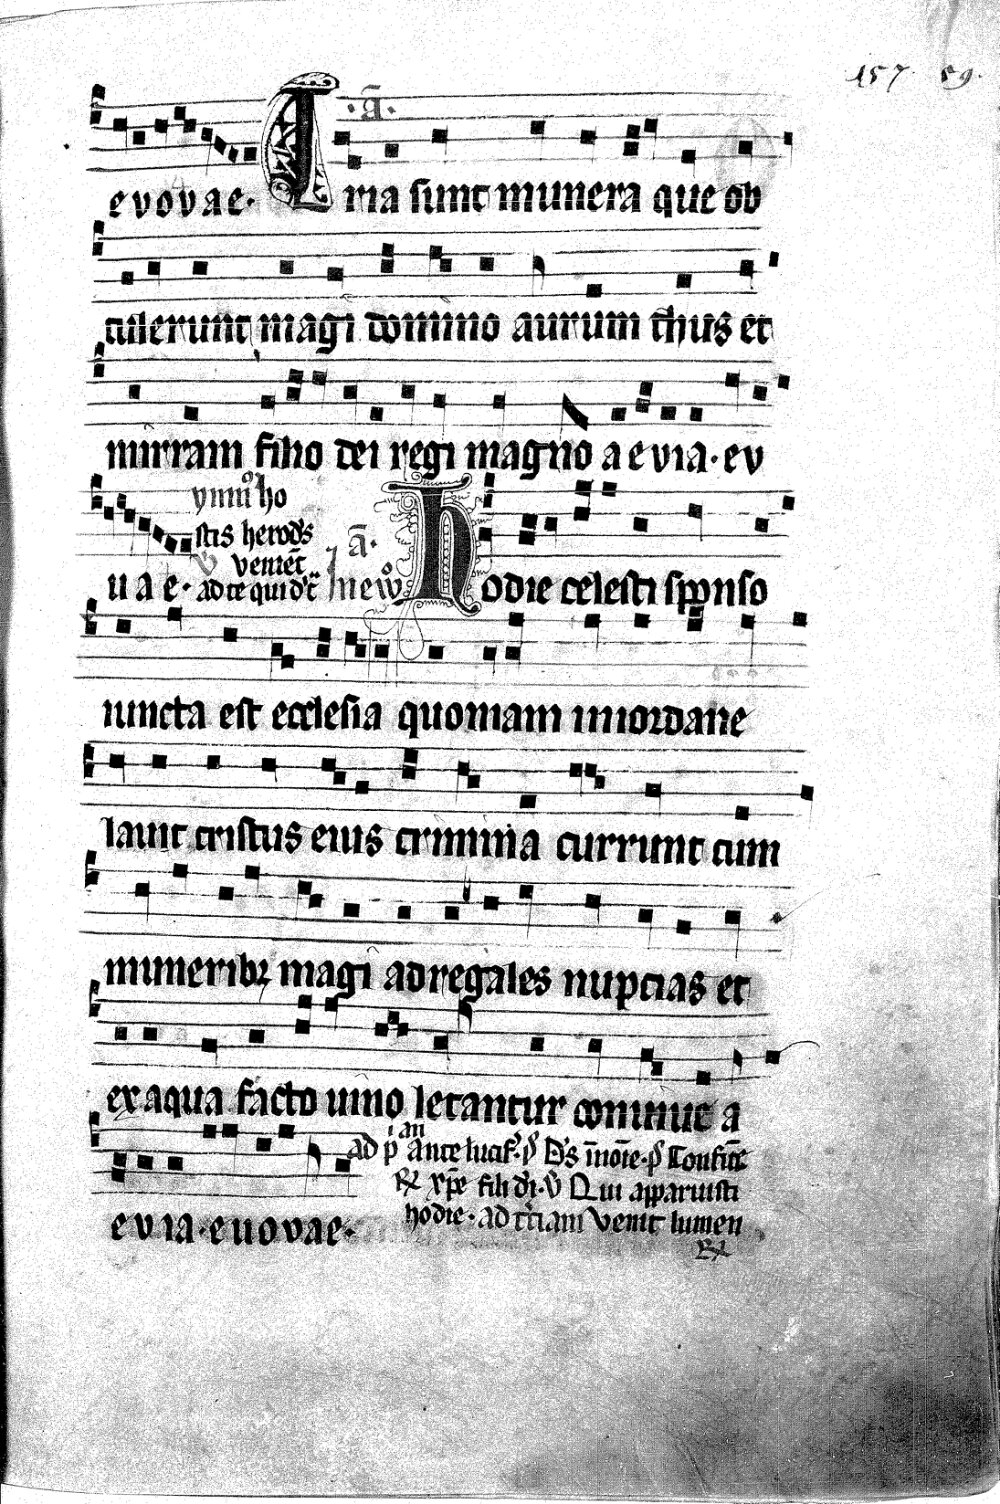 157. 59.
·ā·
evovae· Tria sunt munera que ob
tulerunt magi domino aurum thus et
mirram filio dei regi magno aevia· ev
ymnꝰ ho
stis herodꝭs
ā·
℣ veniet̄
uae· ad te qui Hodie celesti sponso
iuncta est ecclesia quoniam in iordane
lavit cristus eius crimina currunt cum
muneribꝫ magi ad regales nupcias et
ex aqua facto uino letantur conuiue a
an
ad p̄ Ante lucif· p̄ Ds in noīe· p̄ Confitē
℞ xpē fili di· ℣ Qui apparuisti
evia· euovae· hodie· ad tciam Venit lumen
℞